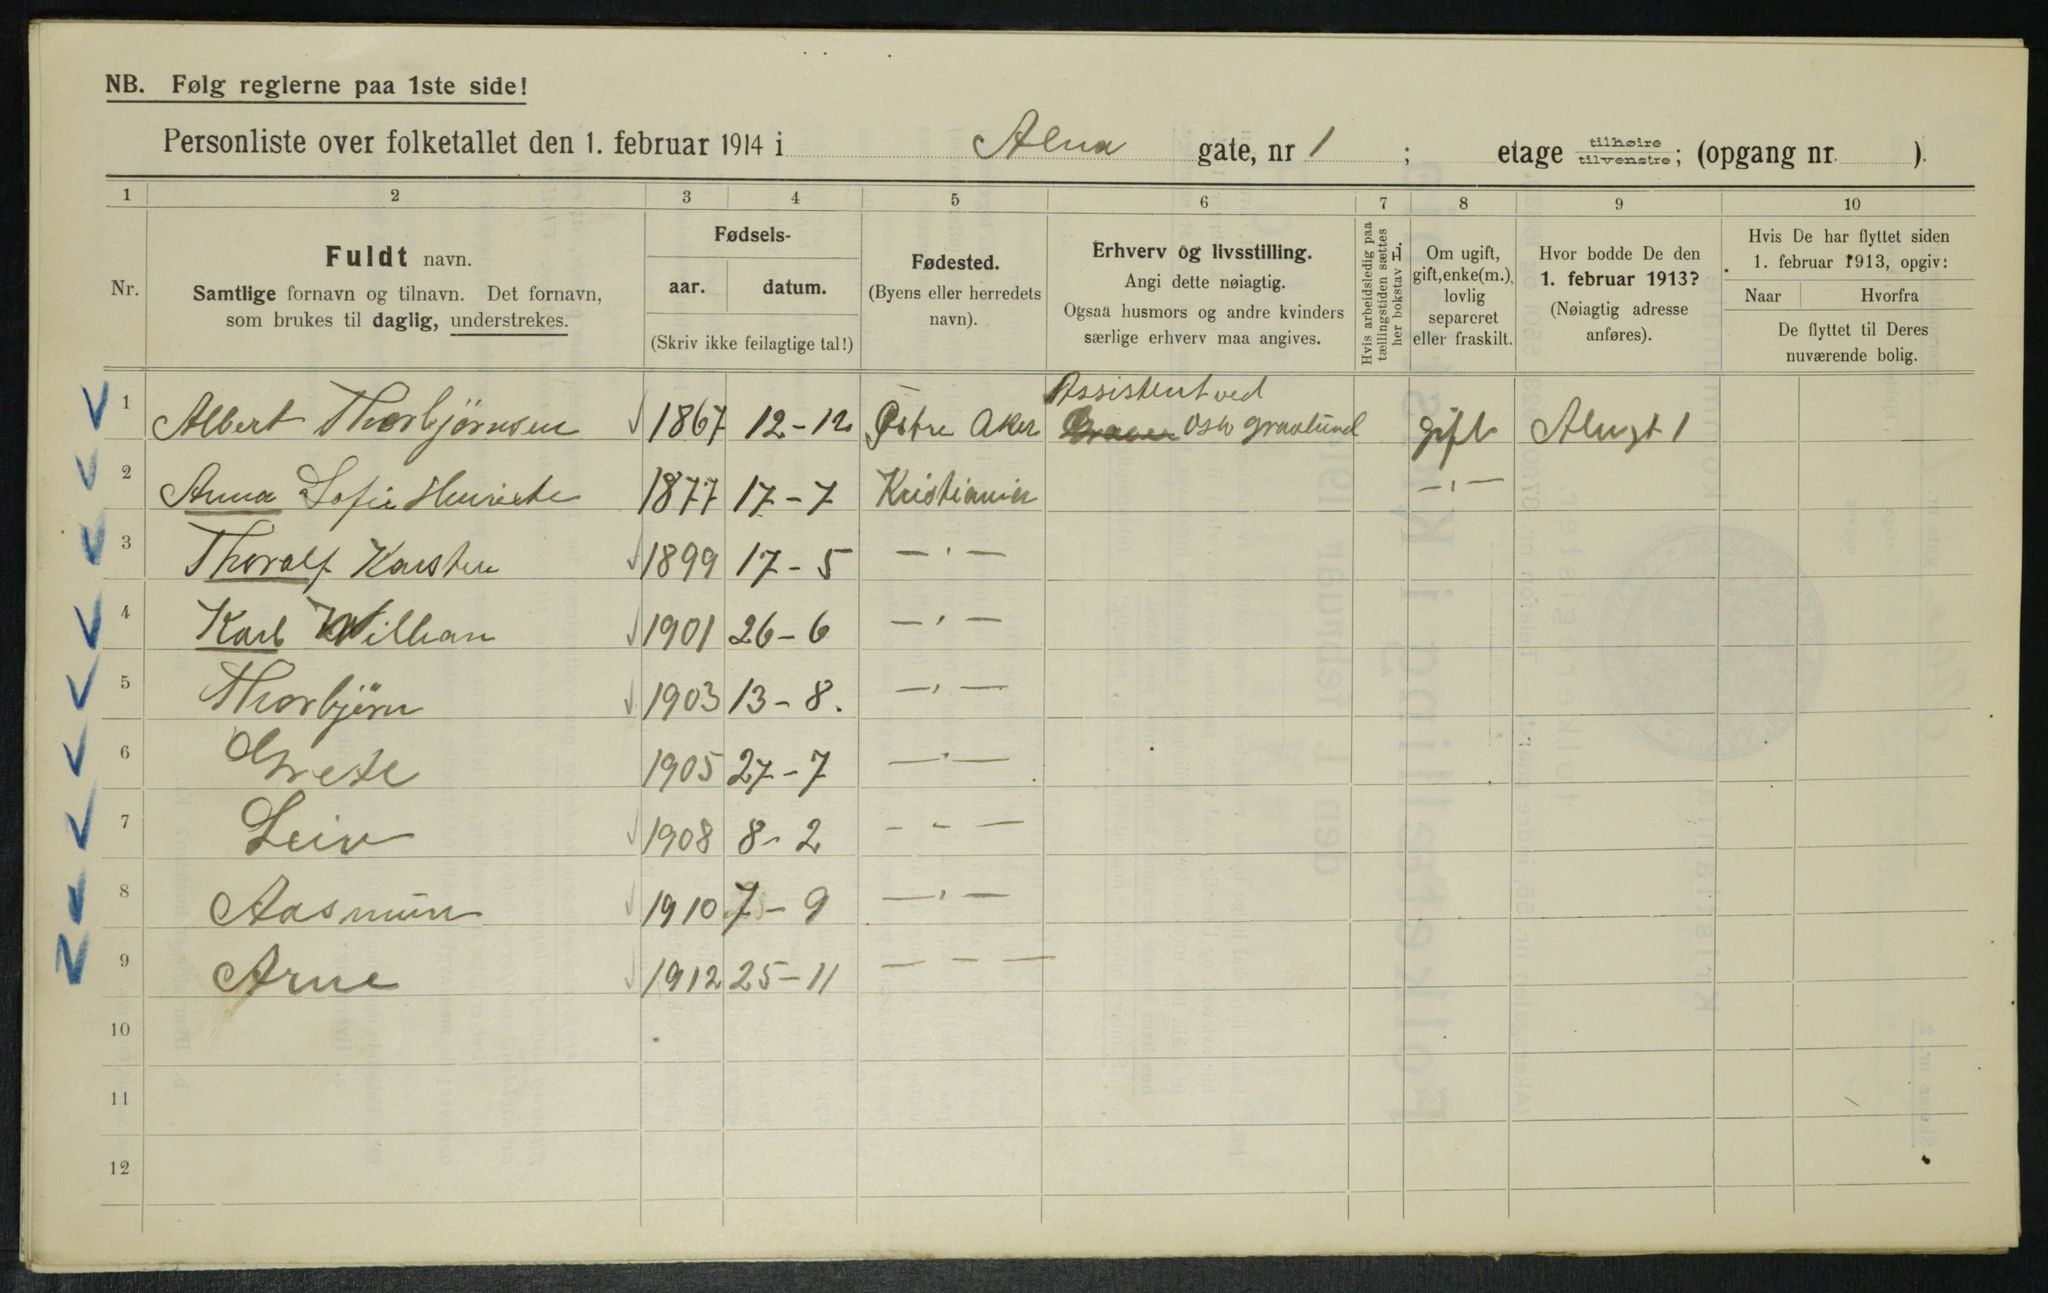 NB. Følg reglerne paa 1ste side!
Personliste over folketallet den 1. februar 1914 i Alna gate, nr 1 ; etage tilhøire tilvenstre; (opgang nr. ).
1 2 3 4 5 6 7 8 9 10
Nr.
Fuldt navn.
Samtlige fornavn og tilnavn. Det fornavn,
som brukes til daglig, understrekes.
Fødsels-
aar. datum.
(Skriv ikke feilagtige tal!)
Fødested.
(Byens eller herredets
navn).
Erhverv og livsstilling.
Angi dette nøiagtig.
Ogsaa husmors og andre kvinders
særlige erhverv maa angives.
Hvis arbeidsledig paa
tællingstiden sættes
her bokstav L.
Om ugift,
gift, enke(m.),
lovlig
separeret
eller fraskilt.
Hvor bodde De den
1. februar 1913?
(Nøiagtig adresse
anføres).
Hvis De har flyttet siden
1. februar 1913, opgiv:
Naar Hvorfra
De flyttet til Deres
nuværende bolig.
1 Albert Thorbjørnsen 1867 12-12 Østre Aker Assistent ved Oslo gravlund gift Alngt 1
2 Anna Sofie Henriete 1877 17-7 Kristiania —"—
3 Thoralf Karsten 1899 17-5 —"—
4 Karl William 1901 26-6 —"—
5 Thorbjørn 1903 13-8. —"—
6 Grete 1905 27-7 —"—
7 Leiv 1908 8-2 - - —
8 Aasmun 1910 7-9 —"—
9 Arne 1912 25-11 — — —
10
11
12